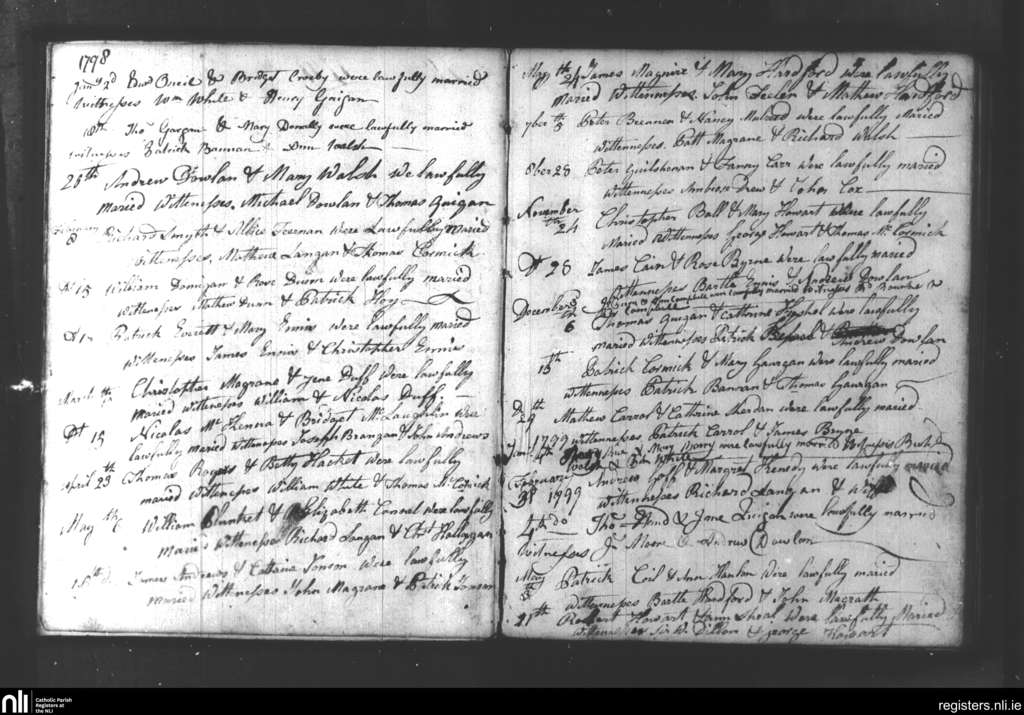 1798
Jany 2d & Bridget Crosby were lawfully married
witnesses Wm White & Henry Gaigan
18th Thos Gargan & Mary Donolly were lawfully married
witnesses Patrick Bannan & Ann Walsh
28th Andrew Dowlan & Mary Walsh We lawfully
maried Wittenesses Michael Dowlan & Thomas Guigan
8 Richard Smyth & Allice Teernan were Lawfully Maried
Wittenesses, Mathew Langan & Thomas Cormick
Dt 15 William Donigan & Rose Dixon were lawfully maried
Wittenesses Mathew Dunn & Patrick Hoy
Dt Patrick Everett & Mary Ennis were lawfully maried
Wittenesses James Ennis & Christopher Ennis
March Christopher Magrane & Jane Duff were lawfully
maried Wittenesses William & Nicolas Duff.
Dt 15 Nicolas & Bridget McLaughlin were
lawfully maried Wittenesses Joseph Brangan & John Andrews
April 23th Thomas Rogers & Betty Hacket were lawfully
maried Wittenesses William White & Thomas McCormick
May th William Plunket & Elizabeth Connel were lawfully
maried Wittenesses Richard Langan & Chr Halligan
15th James Andrews & Catherine Jonson were lawfully
married Wittenesses John Magrane & Patrick Jonson
May th 24 James Maguire & Mary Hardford were lawfully
Maried Wittennesses, John & Mathew Hardford
7ber th 5 Peter Brennen & Nancy were lawfully Maried
Wittennesses. Patt Magrane & Richard Walsh
8ber 28 Peter Guilshenan & Fanny Carr were lawfully maried
Wittennesses Ambrose Drew & John Cox
November th 24 Christopher Ball & Mary Howart were lawfully
Maried Wittennesses George Howart & Thomas McCormick
Dt 28 James Cain & Rose Byrne were lawfully maried
Wittennesses Bartle Ennis & Andrew Dowlan
were lawfully married Witnesses
December th 6 Thomas Guigan & Catherine were lawfully
maried Wittennesses Patrick & Andrew Dowlan
15th Patrick Cormick & Mary Gavigan were lawfully maried
Wittennesses Patrick Banvan & Thomas Gavigan
D 29th Mathew Carrol & Catharine Sherdan were lawfully maried
1799 Wittennesses Patrick Carrol & James Bryne
Jany 4th & Mary were lawfully married Witnesses
Walsh & Ann White
Fabruary Andrew Goff & Margret Kenedy were lawfully maried
3d 1799 Wittennesses Richard Langan &
4th do Thos & Jane Quigan were lawfully married
witnesses Jn Moore & Andrew Dowlan
May th Patrick Coil & Ann Hanlon were lawfully maried
Wittennesses Bartle Hardford & John Magrath
27th Robert Howart & Ann were lawfully Maried
Wittennesses Dillon & George Howart
nli
Catholic Parish
Registers at
the NLI
registers.nli.ie